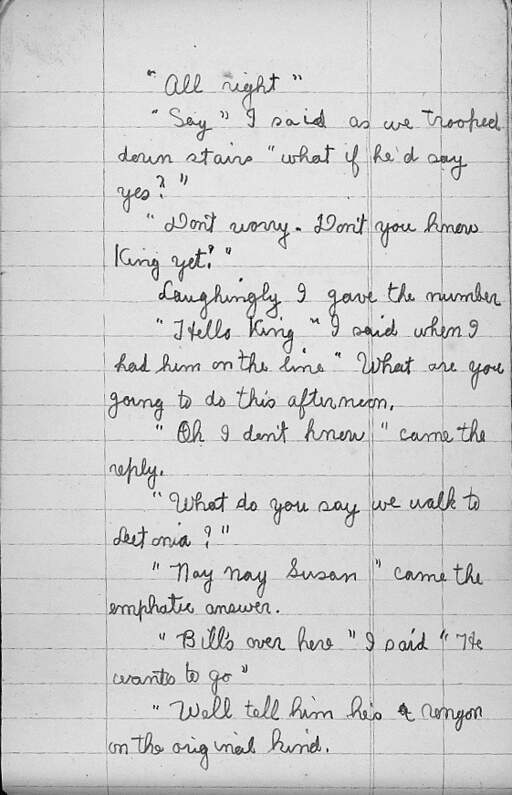 "All right"
"Say" I said as we trooped
down stairs "what if he'd say
yes?"
"Don't worry. Don't you know
King yet?"
Laughingly I gave the number
"Hello King" I said when I
had him on the line "What are you
going to do this afternoon.
"Oh I don't know" came the
reply.
"What do you say we walk to
Deetonia?"
"Nay nay Susan" came the
emphatic answer.
"Bill's over here" I said "He
wants to go"
"Well tell him he's a
on the original kind.